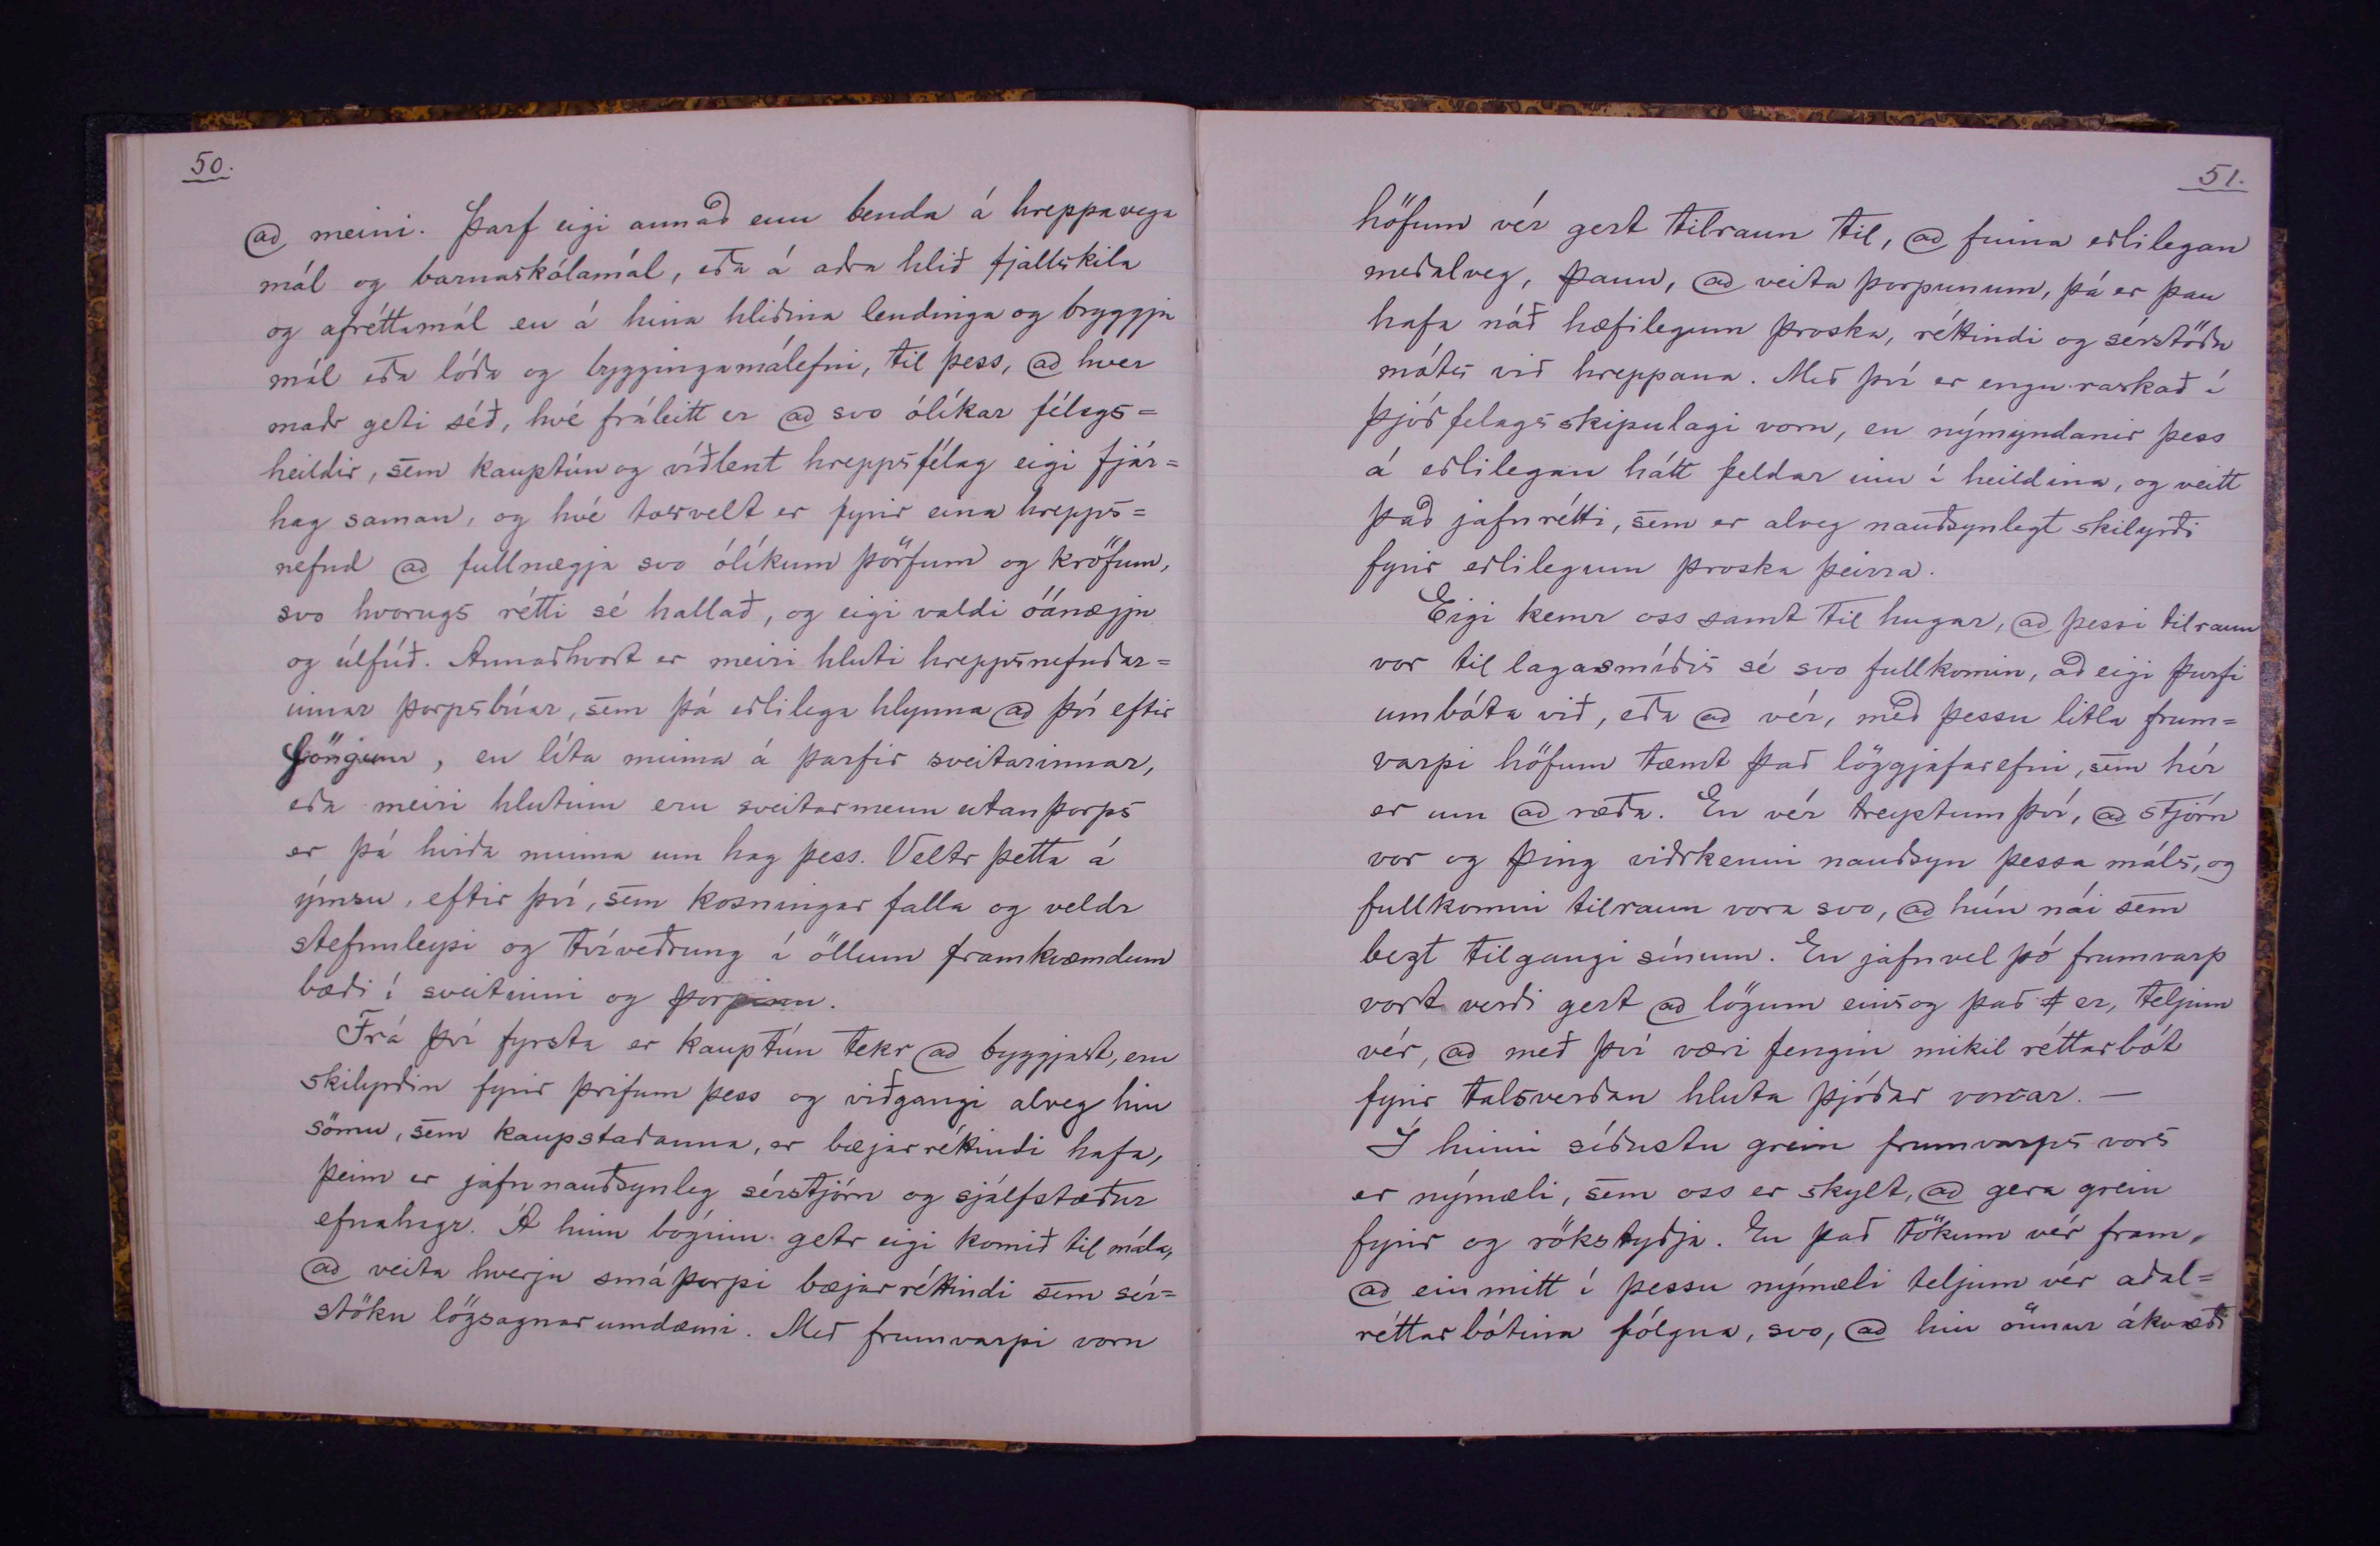 50.
að meini. Þarf eigi annað enn benda á hreppavega
mál og barnaskólamál, eða á aðra hlið fjallskila
og afréttamál en á hina hliðina lendinga og bryggju
mál eða lóða og byggingamálefni, til þess, að hver
maðr geti séð, hvé fráleitt er að svo ólíkar félags=
heildir, sem kauptún og víðlent hreppsfélag eigi fjár=
hag saman, og hvé torvelt er fyrir eina hrepps=
nefnd að fullnægja svo ólíkum þörfum og kröfum,
svo hvorugs rétti sé hallað, og eigi valdi óánægju
og úlfúð. Annaðhvort er meiri hluti hreppsnefndar=
innar þorpsbúar, sem þá eðlilega hlynna að því eftir
föngum, en líta minna á þarfir sveitarinnar,
eða meiri hlutinn eru sveitarmenn utanþorps
er þá hirða minna um hag þess. Veltr þetta á
ýmsu, eftir því, sem kosningar falla og veldr
stefnuleysi og tvíveðrung í öllum framkvæmdum
bæði í sveitinni og þorpinu.
Frá því fyrsta er kauptún tekr að byggjast, eru
skilyrðin fyrir þrifum þess og viðgangi alveg hin
sömu, sem kaupstaðanna, er bæjarréttindi hafa,
þeim er jafnnauðsynleg sérstjórn og sjálfstæður
efnahagr. Á hinn bóginn getr eigi komið til mála,
að veita hverju smáþorpi bæjarréttindi sem sér=
stöku lögsagnarumdæmi. Með frumvarpi voru
51.
höfum vér gert tilraun til, að finna eðlilegan
meðalveg, þann, að veita þorpunum, þá er þau
hafa náð hæfilegum þroska, réttindi og sérstöðu
mótis við hreppana. Með því er engu raskað í
þjóðfelagsskipulagi voru, en nýmyndanir þess
á eðlilegan hátt feldar inn í heildina, og veitt
það jafnrétti, sem er alveg nauðsynlegt skilyrði
fyrir eðlilegum þroska þeirra.
Eigi kemr oss samt til hugar, að þessi tilraun
vor til lagasmíðis sé svo fullkomin, að eigi þurfi
umbóta við, eða að vér, með þessu litla frum=
varpi höfum tæmt það löggjafarefni, sem hér
er um að ræða. En vér treystum því, að stjórn
vor og þing viðrkenni nauðsyn þessa máls, og
fullkomni tilraun vora svo, að hún nái sem
bezt tilgangi sínum. En jafnvel þó frumvarp
vort verði gert að lögum einsog það er, teljum
vér, að með því væri fengin mikil réttarbót
fyrir talsverðan hluta þjóðar vorrar. —
Í hinni síðustu grein frumvarps vors
er nýmæli, sem oss er skylt, að gera grein
fyrir og rökstyðja. En það tökum vér fram,
að einmitt í þessu nýmæli teljum vér aðal=
réttarbótina fólgna, svo, að hin önnur ákvæði